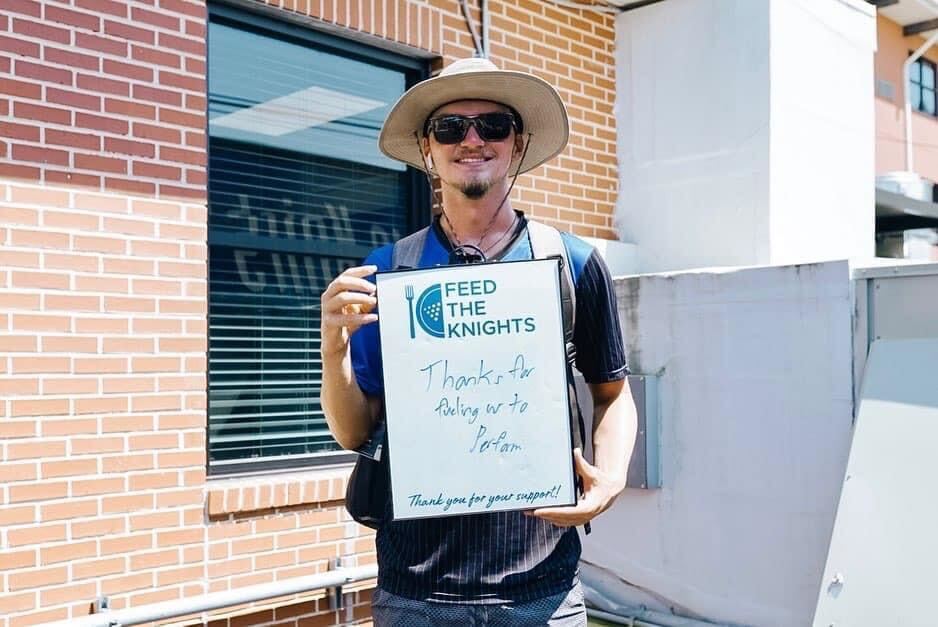 FEED
THE
KNIGHTS
Thanks for
fueling us to
Perform
Thank you for your support!